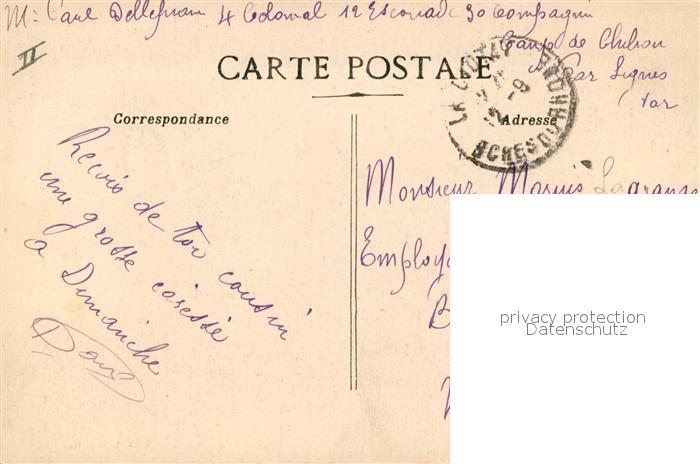 Mr: Paul 4 Colonial 12 Escouade 30 Compagnie
Camp de Chibron
Par Signes
(Var
II
CARTE POSTALE
Correspondance
Adresse
LA CIOTAT
BCHES DU RHONE
Recois de ton cousin
une grosse caresse
a Dimanche
Monsieur Marius Lagrange
Employé
B
privacy protection
Datenschutz